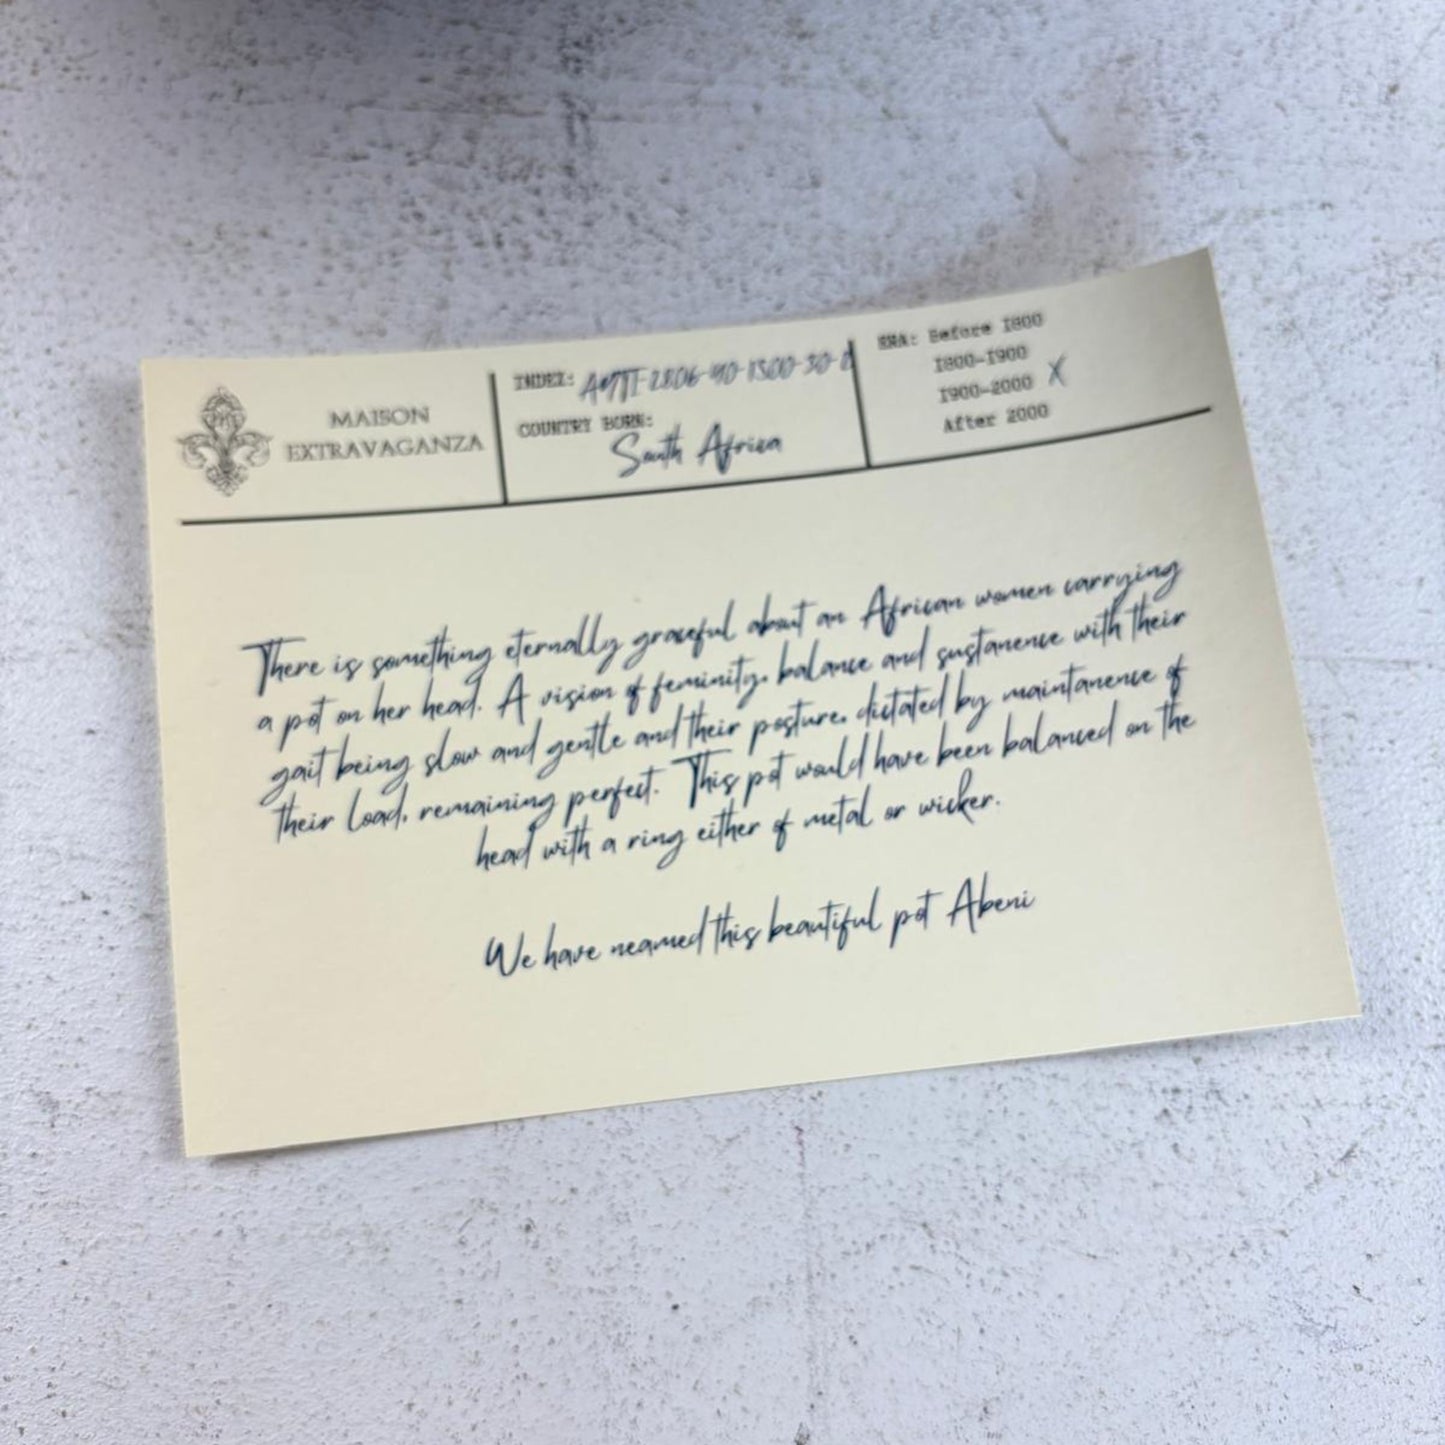 MAISON
EXTRAVAGANZA
INDEX:
COUNTRY BORN:
South Africa
ERA: Before 1800
1800-1900
1900-2000 X
After 2000
There is something eternally graceful about an African women carrying
a pot on her head. A vision of feminity, balance and sustanence with their
gait being slow and gentle and their posture, dictated by maintanence of
their load, remaining perfect. This pot would have been balanced on the
head with a ring either of metal or wicker.
We have neamed this beautiful pot Abeni